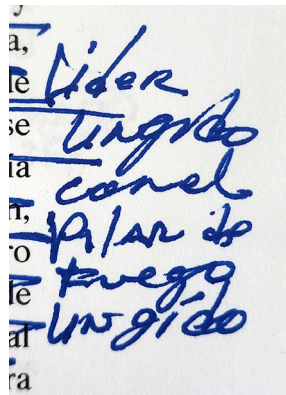 y
a,
le
se
ia
n,
ro
le
al
ra
Líder
ungido
canal
Pilar de
Fuego
ungido